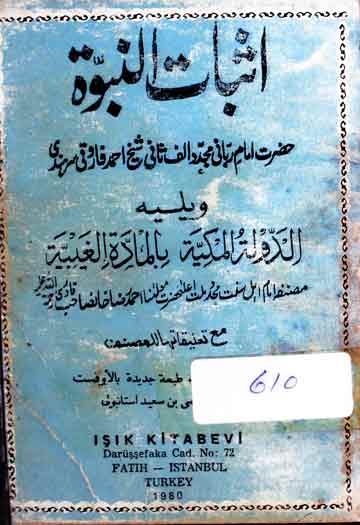 اثبات النبوّة
حضرت امام ربانی مجدد الف ثانی شیخ احمد فاروقی سرہندی
ويليه
الدّولة المكيّة بالمادّة الغيبيّة
مصنفه امام اہل سنت مجدد ملت اعلیٰحضرت مولٰنا احمد رضا خانصاحب قادری
مع تعليقاتها للمصنف
طبعة جديدة بالأوفست
بن سعيد استانبولى
610
IŞIK KİTABEVİ
Darüşşefaka Cad. No: 72
FATİH — ISTANBUL
TURKEY
1980